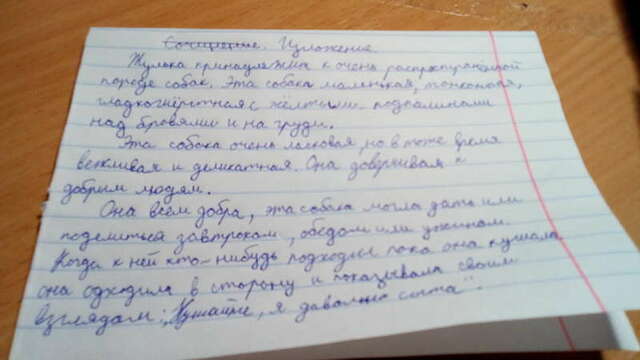 Сочинение. Изложение.
Жулька принадлежит к очень распространённой
породе собак. Эта собака маленькая, тонконогая,
гладкошёрстная с жёлтыми подпалинами
над бровями и на груди.
Эта собака очень ласковая, но в тоже время
вежливая и деликатная. Она доверчивая к
добрым людям.
Она всем добра, эта собака могла дать или
поделиться завтраком, обедом или ужином.
Когда к ней кто-нибудь подходил пока она кушала
она одходила в сторону и показывала своим
взглядом: „Кушайте, я давольно сыта".